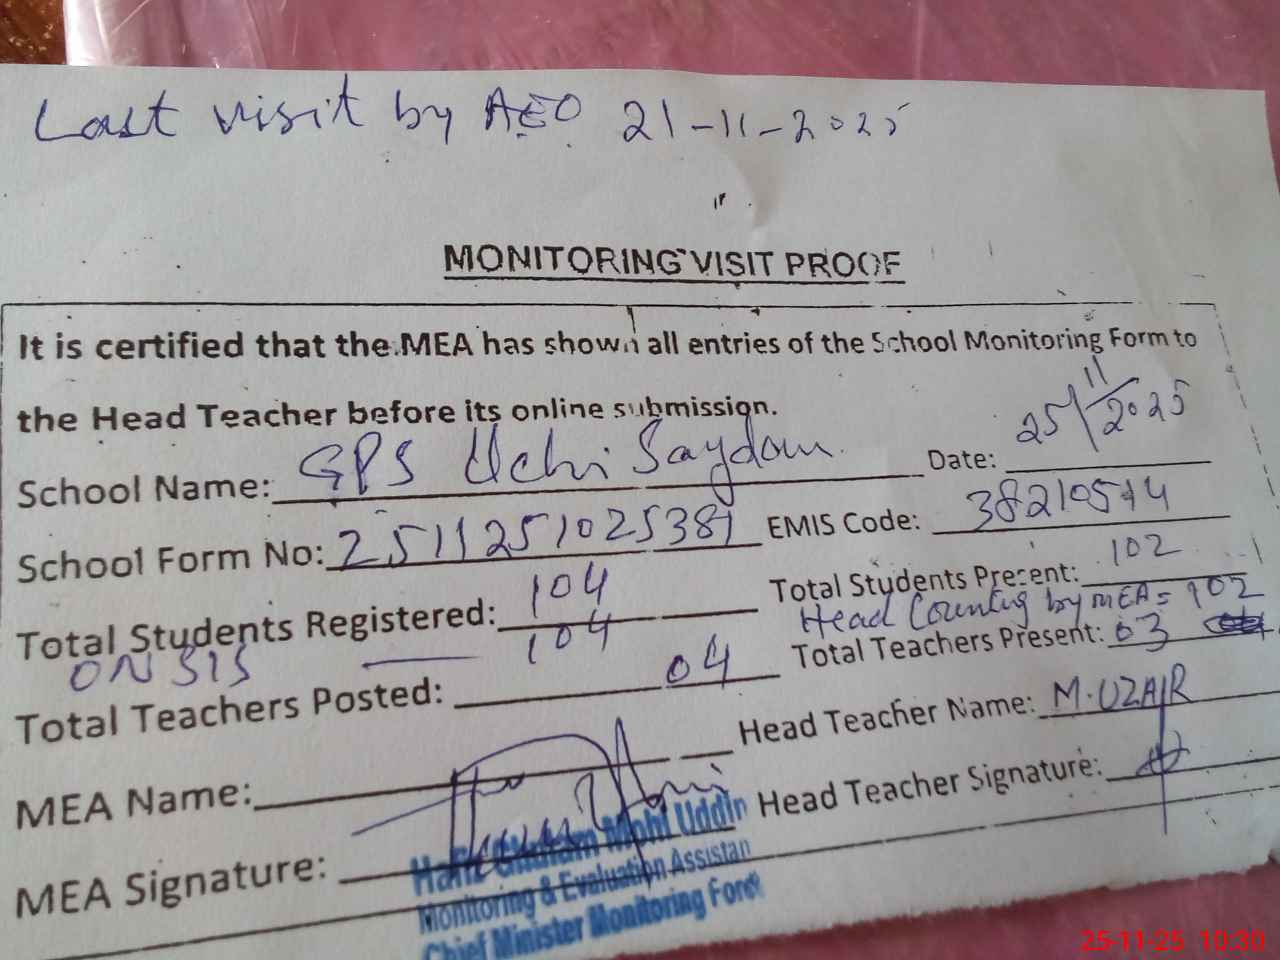 Last visit by AEO 21-11-2025
MONITORING VISIT PROOF
It is certified that the MEA has shown all entries of the School Monitoring Form to
the Head Teacher before its online submission.
School Name: GPS Uchi Saydan Date: 25/11/2025
School Form No: 2511251025381 EMIS Code: 38210514
Total Students Registered: 104 Total Students Present: 102
ON SIS — 104 Head Counting by MEA = 102
Total Teachers Posted: 04 Total Teachers Present: 03
MEA Name: Head Teacher Name: M.UZAIR
MEA Signature: Head Teacher Signature:
Hafiz Ghulam Mohi Uddin
Monitoring & Evaluation Assistan
Chief Minister Monitoring Force
25-11-25 10:30